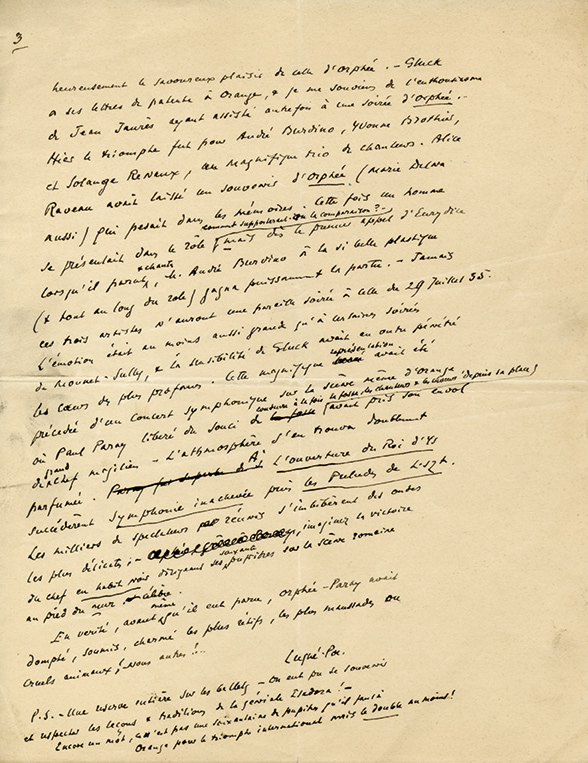 3
heureusement le savoureux plaisir de celle d'Orphée. - Gluck
a ses lettres de patente à Orange, & je me souviens de l'enthousiasme
de Jean Jaurès ayant assisté autrefois à une soirée d'Orphée. -
Hier le triomphe fut pour André Burdino, Yvonne Brothier,
et Solange Renaux, un magnifique trio de chanteurs. Alice
Raveau avait laissé un souvenir d'Orphée (Marie Delna
aussi) qui pesait dans les mémoires. Cette fois un homme
comment supporterait-on la comparaison? -
se présentait dans le role / mais dès le premier appel d'Eurydice
& chanta
lorsqu'il parut, M. André Burdino à la si belle plastique
(& tout au long du role) gagna puissamment la partie. - Jamais
ces trois artistes n'auront une pareille soirée à celle du 29 Juillet 35.
L'émotion était au moins aussi grande qu'à certaines soirées
du Mounet-Sully, & la sensibilité de Gluck avait en outre pénétré
les cœurs des plus profanes. Cette magnifique représentation avait été
précédée d'un concert symphonique sur la scène même d'Orange
conduire à la fois la fosse des chanteurs & les chœurs depuis sa place)
où Paul Paray libéré du souci de avait pris son envol
grand
de chef magicien - L'athmosphère s'en trouva doublement
parfumée. A L'ouverture du Roi d'Ys
succédèrent Symphonie inachevée puis les Préludes de Liszt.
Les milliers de spectateurs réunis s'imbibèrent des ondes
les plus délicates; - imaginez la victoire
du chef en habit noir dirigeant ses soixante pupitres sur la scène romaine
au pied du mur célèbre.
En vérité, avant même qu'il eut paru, Orphée-Paray avait
dompté, soumis, charmé les plus rétifs, les plus maussades ou
cruels animaux! nous autres!..
Lugné-Poe.
P.S. - Une réserve entière sur les ballets - On eut pu se souvenir
et respecter les leçons & traditions de la géniale Isadora! -
Encore un mot, ce n'est pas une soixantaine de pupitres qu'il fallait à
Orange pour le triomphe international mais le double au moins!